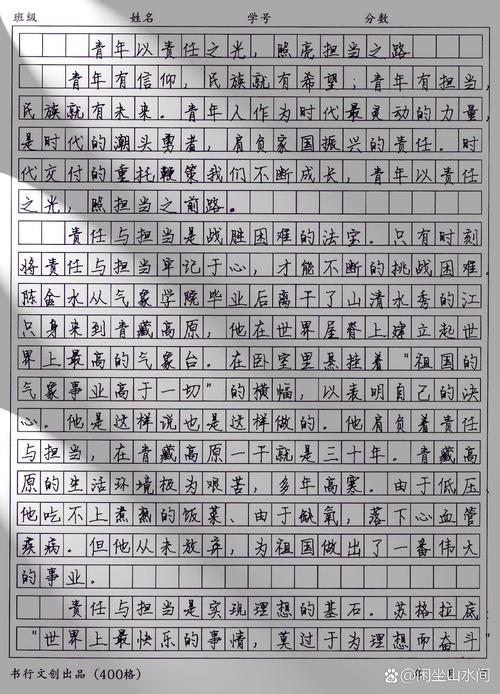 班级 姓名 学号 分数
青年以责任之光，照亮担当之路
青年有信仰，民族就有希望；青年有担当，
民族就有未来。青年人作为时代最灵动的力量，
是时代的潮头勇者，肩负家国振兴的责任。时
代交付的重托鞭策我们不断成长，青年以责任
之光，照担当之前路。
责任与担当是战胜困难的法宝。只有时刻
将责任与担当牢记于心，才能不断的挑战困难。
陈金水从气象学院毕业后离干了山清水秀的江
只身来到青藏高原，他在世界屋脊上建立起世
界上最高的气象台。在卧室里悬挂着"祖国的
气象事业高于一切"的横幅，以表明自己的决
心。他是这样说也是这样做的。他肩负着责任
与担当，在青藏高原一干就是三十年。青藏高
原的生活环境极为艰苦，多年高寒。由于低压、
他吃不上煮熟的饭菜、由于缺氧，落下心血管
疾病。但他从未放弃，为祖国做出了一番伟大
的事业。
责任与担当是实现理想的基石。苏格拉底：
"世界上最快乐的事情，莫过于为理想而奋斗"
书行文创出品（400格） 年 月
@闲坐山水间